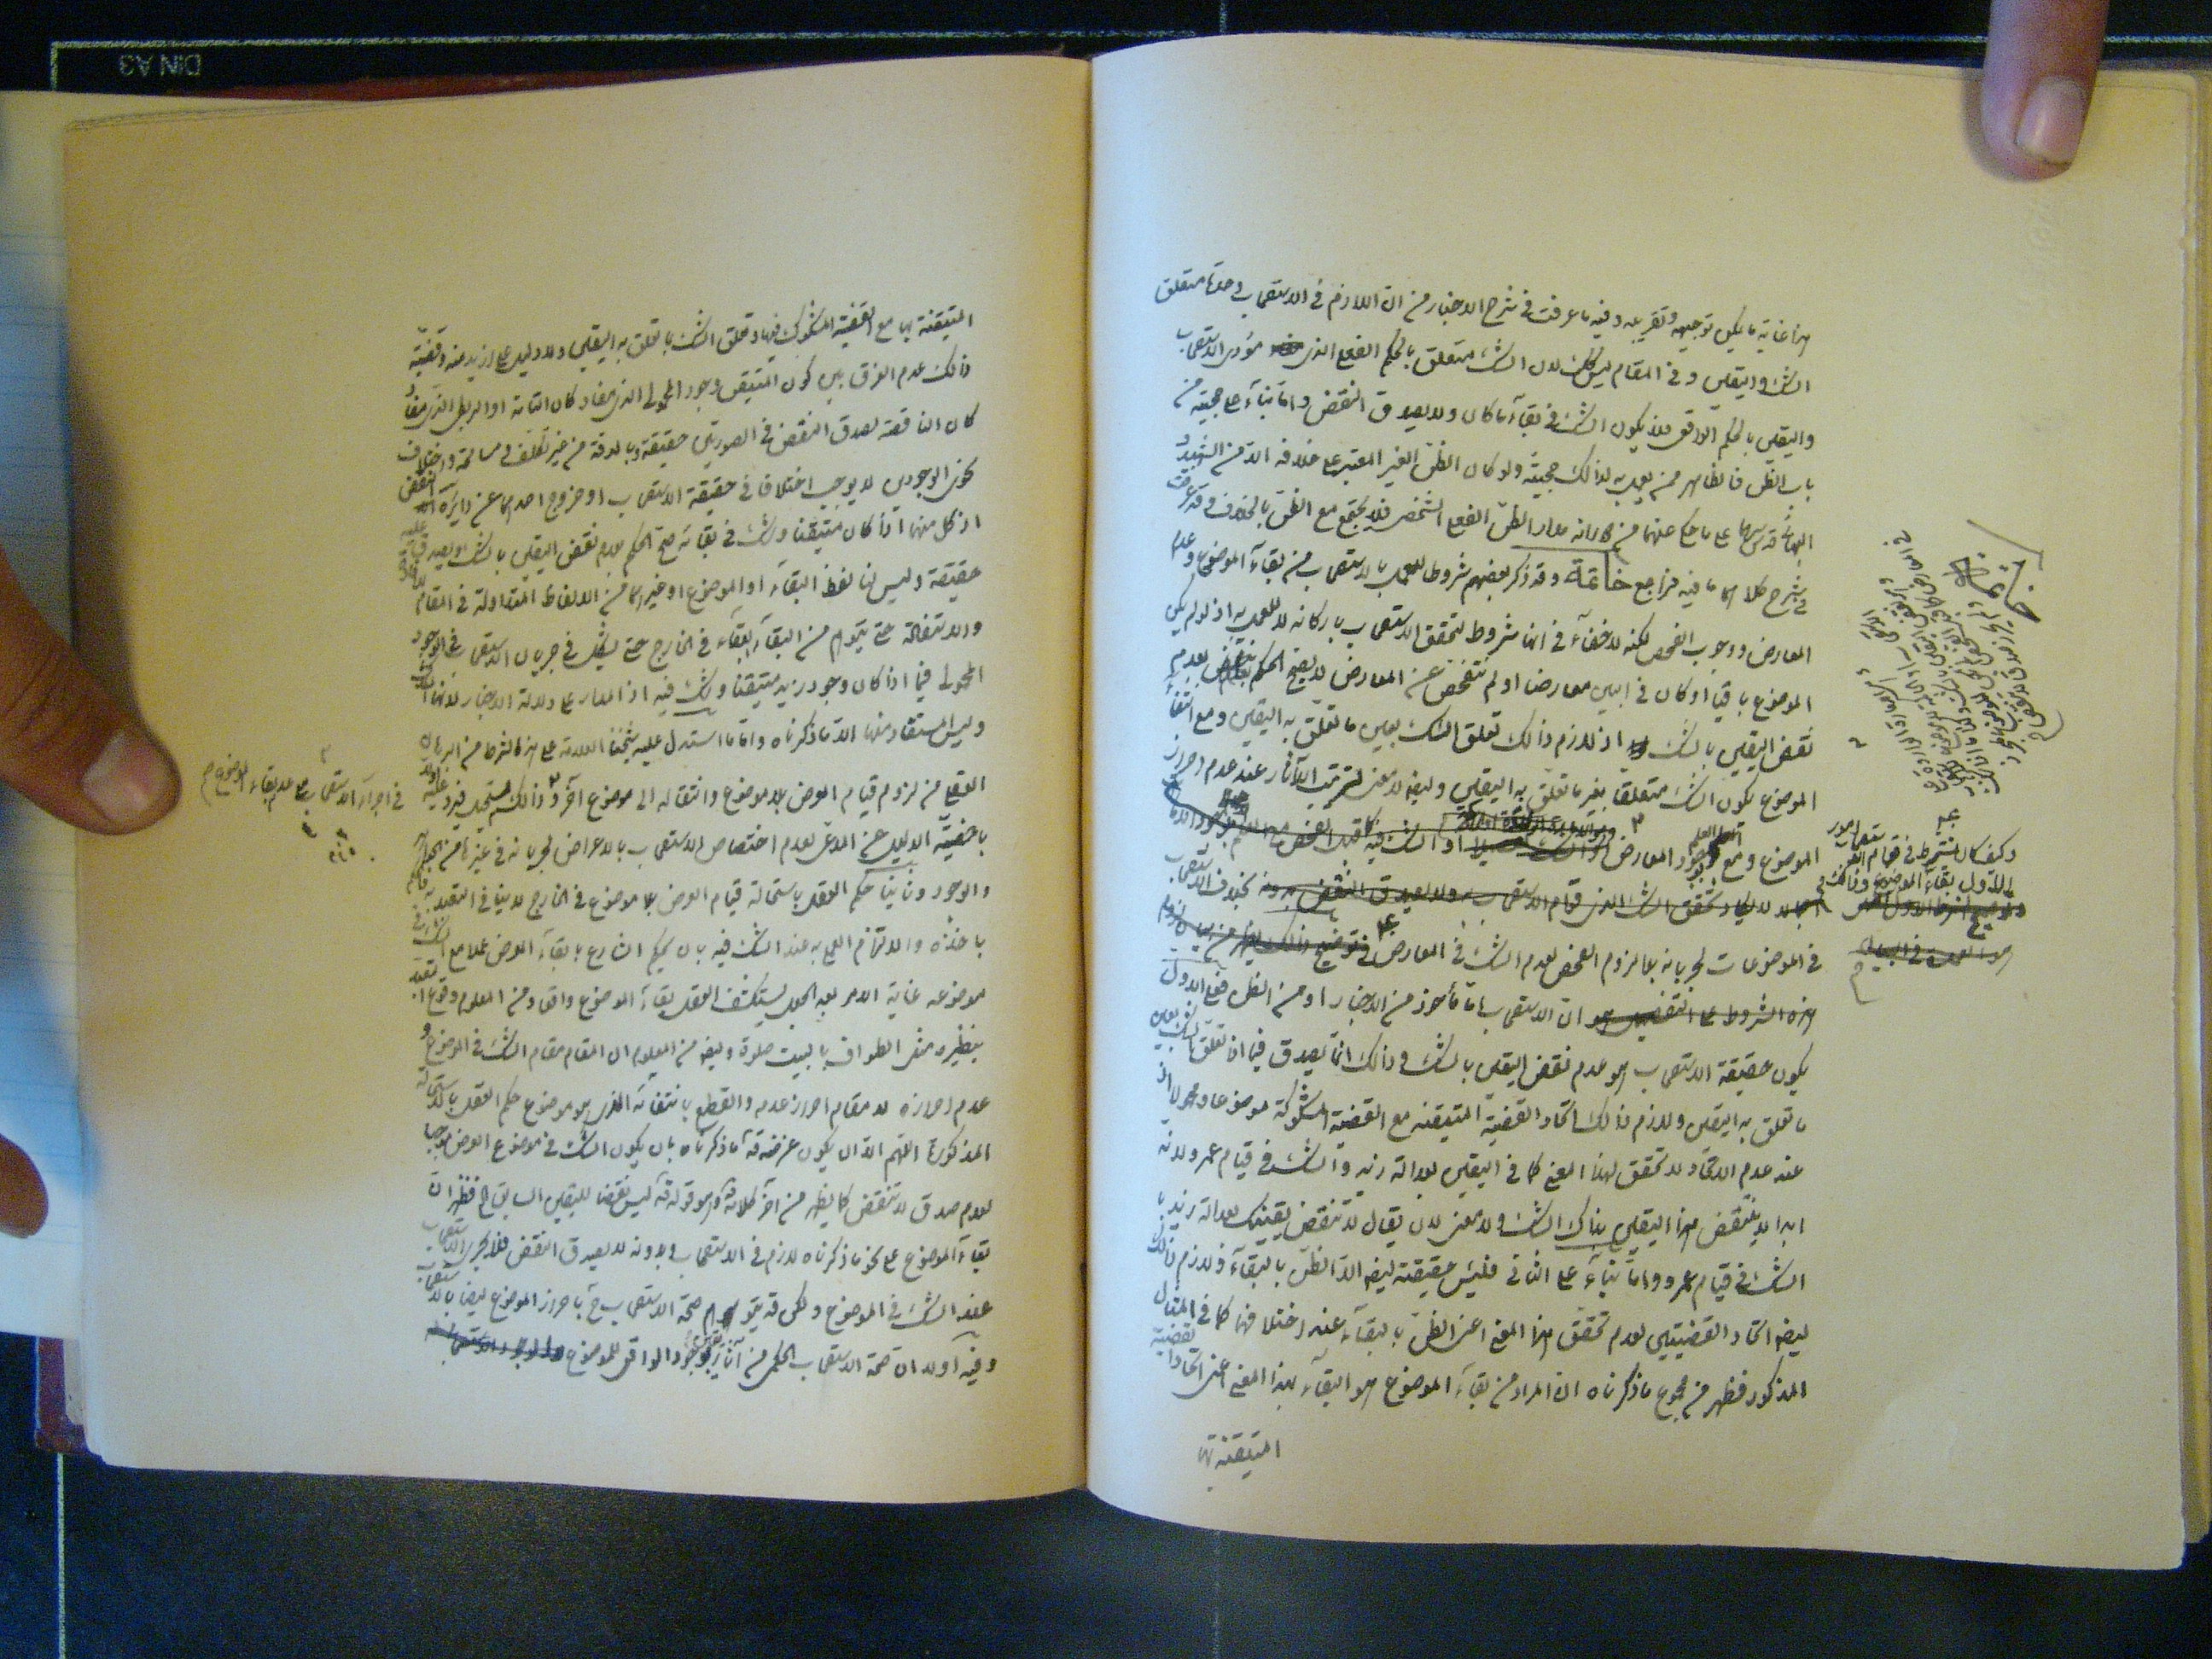 هذا غاية ما يمكن توجيهه وتقريبه وفيه ما عرفت في شرح الاخبار من ان اللازم في الاستصحاب وحدة متعلق
الشك واليقين وفي المقام ليس كك لان الشك متعلق بالحكم الفعلي الذي مؤدى الاستصحاب
واليقين بالحكم الواقعي فلا يكون الشك في بقاء ما كان ولا يصدق النقض واما بناء على حجيته من
باب الظن فالظاهر ممن يعمل به لذلك حجيته ولو كان الظن الغير المعتبر على خلافه الا من الشهيد و
البهائي قدس سرهما على ما حكي عنهما من دورانه مدار الظن الفعلي الشخصي فلا يجتمع مع الظن بالخلاف وقد عرفت
في شرح كلامهما ما فيه فراجع خاتمة وقد ذكر بعضهم شروطا للعمل بالاستصحاب من بقاء الموضوع وعدم
المعارض ووجوب الفحص لكنه لا خفاء في انها شروط لتحقق الاستصحاب باركانه لا للعمل به اذ لو لم يكن
الموضوع باقيا او كان في البين معارضا او لم نتفحص عن المعارض لا يصح الحكم بعدم
نقض اليقين بالشك اذ لازم ذلك تعلق الشك بعين ما تعلق به اليقين ومع انتفاء
الموضوع يكون الشك متعلقا بغير ما تعلق به اليقين وليضه لا معنى لترتيب الآثار عند عدم احراز
الموضوع ومع وجود المعارض او الشك فيه كما قبل الفحص
لا يكاد يتحقق الشك الذي قوام الاستصحاب به ولا يصدق النقض بدونه بخلاف الاستصحاب
في الموضوعات لجريانه بلا لزوم الفحص لعدم الشك في المعارض في توضيح ذلك
هذه الشروط على التفصيل هو ان الاستصحاب اما مأخوذ من الاخبار او من الظن فعلى الاول
يكون حقيقة الاستصحاب هو عدم نقض اليقين بالشك وذلك انما يصدق فيما اذا تعلق الشك بعين
ما تعلق به اليقين ولازم ذلك اتحاد القضية المتيقنه مع القضية المشكوكة موضوعا ومحمولا اذ
عند عدم الاتحاد لا تحقق لهذا المعنى كما في اليقين بعدالة زيد والشك في قيام عمرو لانه
ابدا لا ينتقض هذا اليقين بذاك الشك ولا معنى لان يقال لا تنقض يقينك بعدالة زيد با
الشك في قيام عمرو واما بناء على الثاني فليس حقيقته ليضه الا الظن بالبقاء ولازم ذلك
ليضه اتحاد القضيتين لعدم تحقق هذا المعنى اعني الظن بالبقاء عند اختلافهما كما في المثال
المذكور فظهر من مجموع ما ذكرناه ان المراد من بقاء الموضوع هو البقاء بهذا المعنى اعني اتحاد القضية
المتيقنة بها
خاتمة
وكيف كان يشترط في قوام امور
الاول بقاء الموضوع وذلك
المتيقنة بها مع القضية المشكوك فيها وتعلق الشك بما تعلق به اليقين ولا دليل على ازيد منه وقضية
ذلك عدم الفرق بين كون المتيقن وجود المحمولي الذي مفاد كان التامة او الربطي الذي مفاد
كان الناقصة لصدق النقض في الصورتين حقيقة وبالدقة من غير تكلف ومسامحة واختلاف
نحوي الوجودين لا يوجب اختلافا في حقيقة الاستصحاب او خروج احدهما عن دايرة النقض
اذ كل منهما اذا كان متيقنا وشك في بقائه صح الحكم بعدم نقض اليقين بالشك ويصدق عليه
حقيقة وليس لنا لفظ البقاء او الموضوع او غيرهما من الالفاظ المتداولة في المقام
والاستعالة حتى يتوهم من البقاء البقاء في الخارج حتى يشكل في جريان الاستصحاب في الوجود
المحمولي فيما اذا كان وجود زيد متيقنا وشك فيه اذ المدار على دلالة الاخبار
وليس المستفاد منها الا ما ذكرناه واما ما استدل عليه شيخنا العلامة على هذا الشرط من البرهان
العقلي من لزوم قيام العرض بلا موضوع وانتقاله الى موضوع آخر وذلك مستحيل ففيه اولا
باخصية الدليل عن المدعى لعدم اختصاص الاستصحاب بالاعراض لجريانه في غيرها من الجواهر
والوجود وثانيا حكم العقل باستحالة قيام العرض بلا موضوع في الخارج لا ينافي التعبد به
باخذه والالتزام العملي به عند الشك فيه بان يحكم الشارع بابقاء العرض عملا مع الشك في
موضوعه غاية الامر بعد الجعل يستكشف العقل بقاء الموضوع واقعا ومن المعلوم وقوع
بنظيره مثل الطواف بالبيت صلوة وليضه من المعلوم ان المقام مقام الشك في الموضوع و
عدم احرازه لا مقام احراز عدمه والقطع بانتفائه الذي هو موضوع حكم العقل بالاستحالة
المذكورة اللهم الا ان يكون غرضه قده ما ذكرناه بان يكون الشك في موضوع العرض موجبا
لعدم صدق لا تنقض كما يظهر من آخر كلامه وهو قوله قده ليس نقضا لليقين السابق الخ فظهر ان
بقاء الموضوع على نحو ما ذكرناه لازم في الاستصحاب وبدونه لا يصدق النقض فلا يجري الاستصحاب
عند الشك في الموضوع ولكن قد يتوهم صحة الاستصحاب ح باحراز الموضوع ليضا بالاستصحاب
وفيه اولا ان صحة الاستصحاب الحكمي من آثار الوجود الواقعي للموضوع
في اجراء الاستصحاب مع عدم بقاء الموضوع